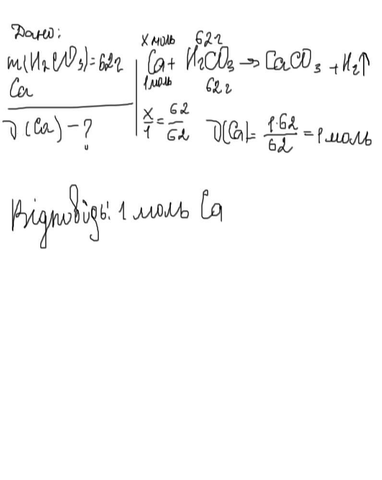 Дано:
m(H₂CO₃)=62г
Ca
ν(Ca)-?
x моль 62г
Ca + H₂CO₃ → CaCO₃ + H₂↑
1моль 62г
x/1 = 62/62 ν(Ca)= 1·62/62 = 1 моль
Відповідь: 1 моль Ca